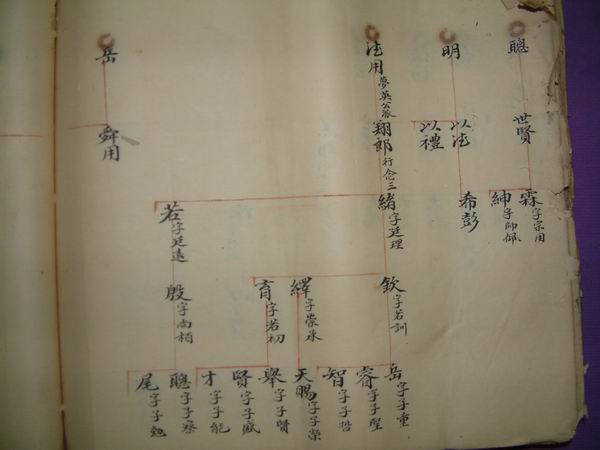 聰
世賢
霖字宗用
紳字師佩
明
以法
以禮
希彭
法用夢英公派
翔郎行念三
緒字廷理
欽字若訓
岳字子重
睿字子聖
智字子哲
繹字崇承
天賜字子榮
育字若初
舉字子賢
賢字子盛
才字子能
若字廷遠
殷字尚栢
聰字子察
尾字子勉
岳
舜用